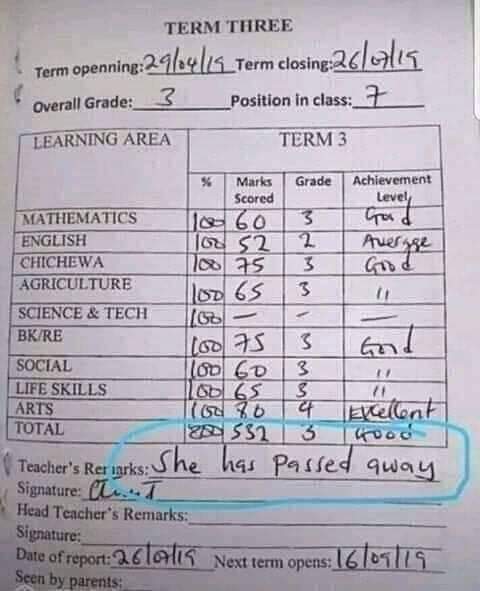 TERM THREE
Term openning: 29/04/19 Term closing: 26/07/19
Overall Grade: 3 Position in class: 7
LEARNING AREA TERM 3
% Marks Scored Grade Achievement Level
MATHEMATICS 100 60 3 Good
ENGLISH 100 52 2 Average
CHICHEWA 100 75 3 Good
AGRICULTURE 100 65 3 "
SCIENCE & TECH 100 — - —
BK/RE 100 75 3 Good
SOCIAL 100 60 3 "
LIFE SKILLS 100 65 3 "
ARTS 100 80 4 Excellent
TOTAL 800 532 3 Good
Teacher's Remarks: She has Passed away
Signature:
Head Teacher's Remarks:
Signature:
Date of report: 26/07/19 Next term opens: 16/09/19
Seen by parents: